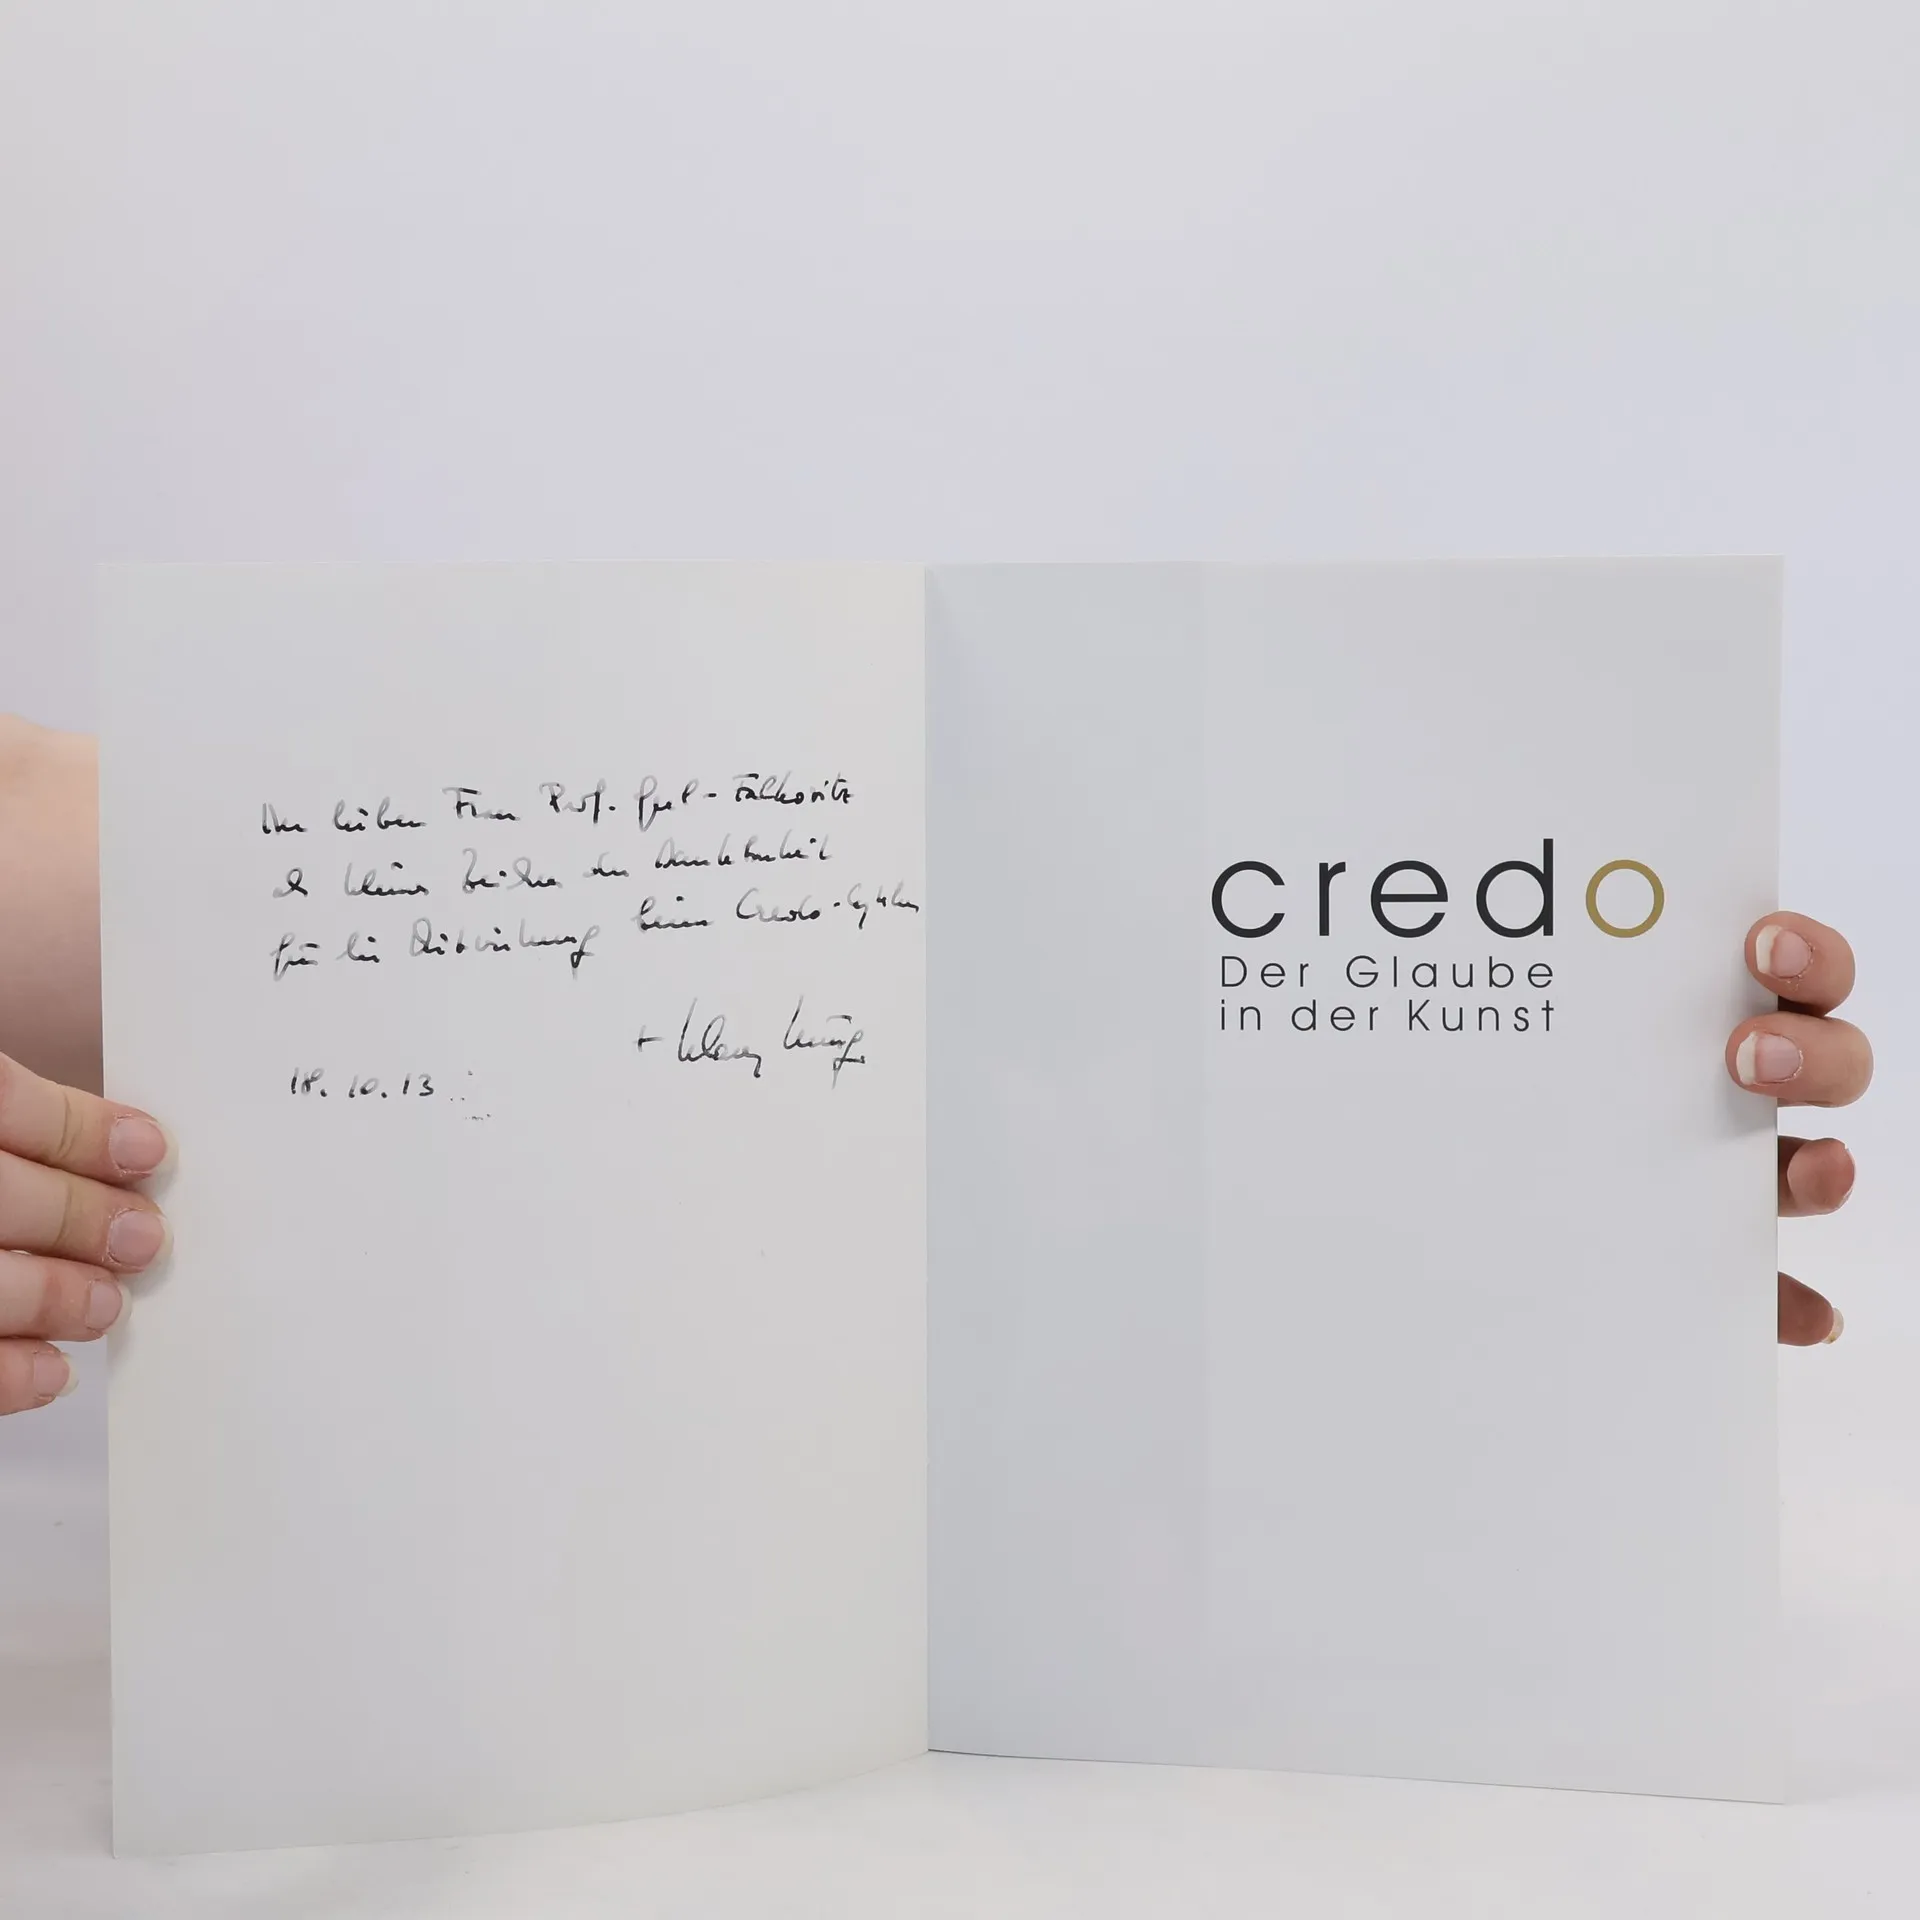 Der lieben Frau Prof. - Falkovitz
als kleines Zeichen der Dankbarkeit
für die Mitwirkung beim Credo-
+ Klaus Küng
18.10.13
credo
Der Glaube
in der Kunst